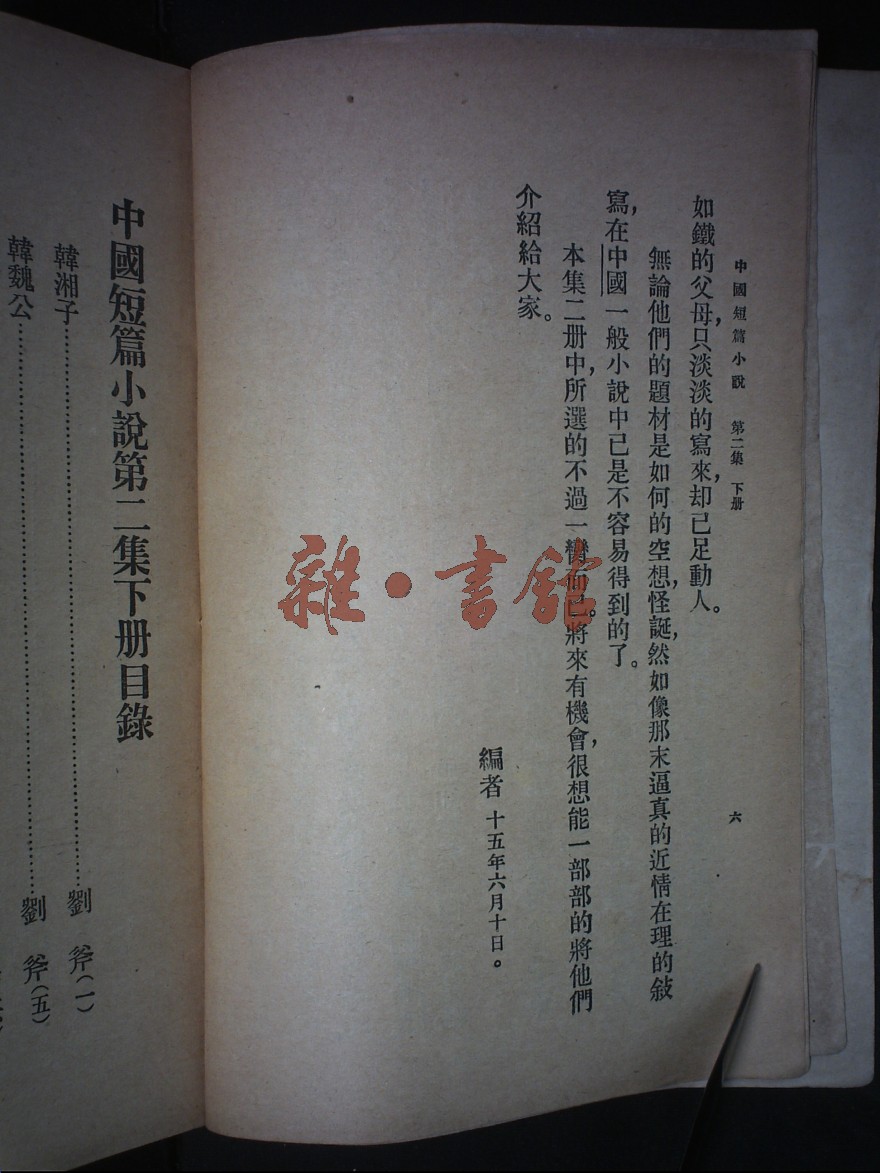 中國短篇小說 第二集 下册 六
如鐵的父母,只淡淡的寫來,却已足動人。
無論他們的題材是如何的空想,怪誕,然如像那末逼真的近情在理的敍
寫,在中國一般小說中已是不容易得到的了。
本集二册中,所選的不過一臠而已。將來有機會,很想能一部部的將他們
介紹給大家。
編者 十五年六月十日。
中國短篇小說第二集下册目錄
韓湘子……劉斧(一)
韓魏公……劉斧(五)
雜·書館